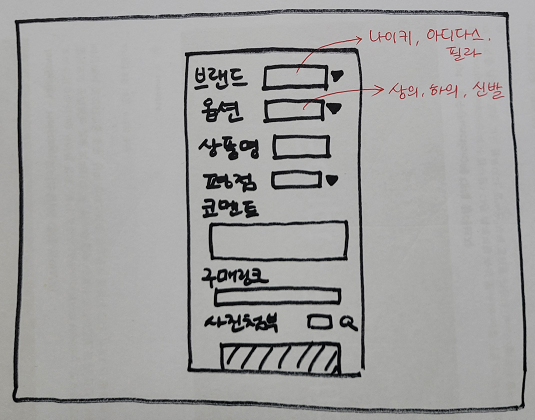 나이키, 아디다스,
필라
브랜드
상의, 하의, 신발
옵션
상품명
평점
코멘트
구매링크
사진첨부